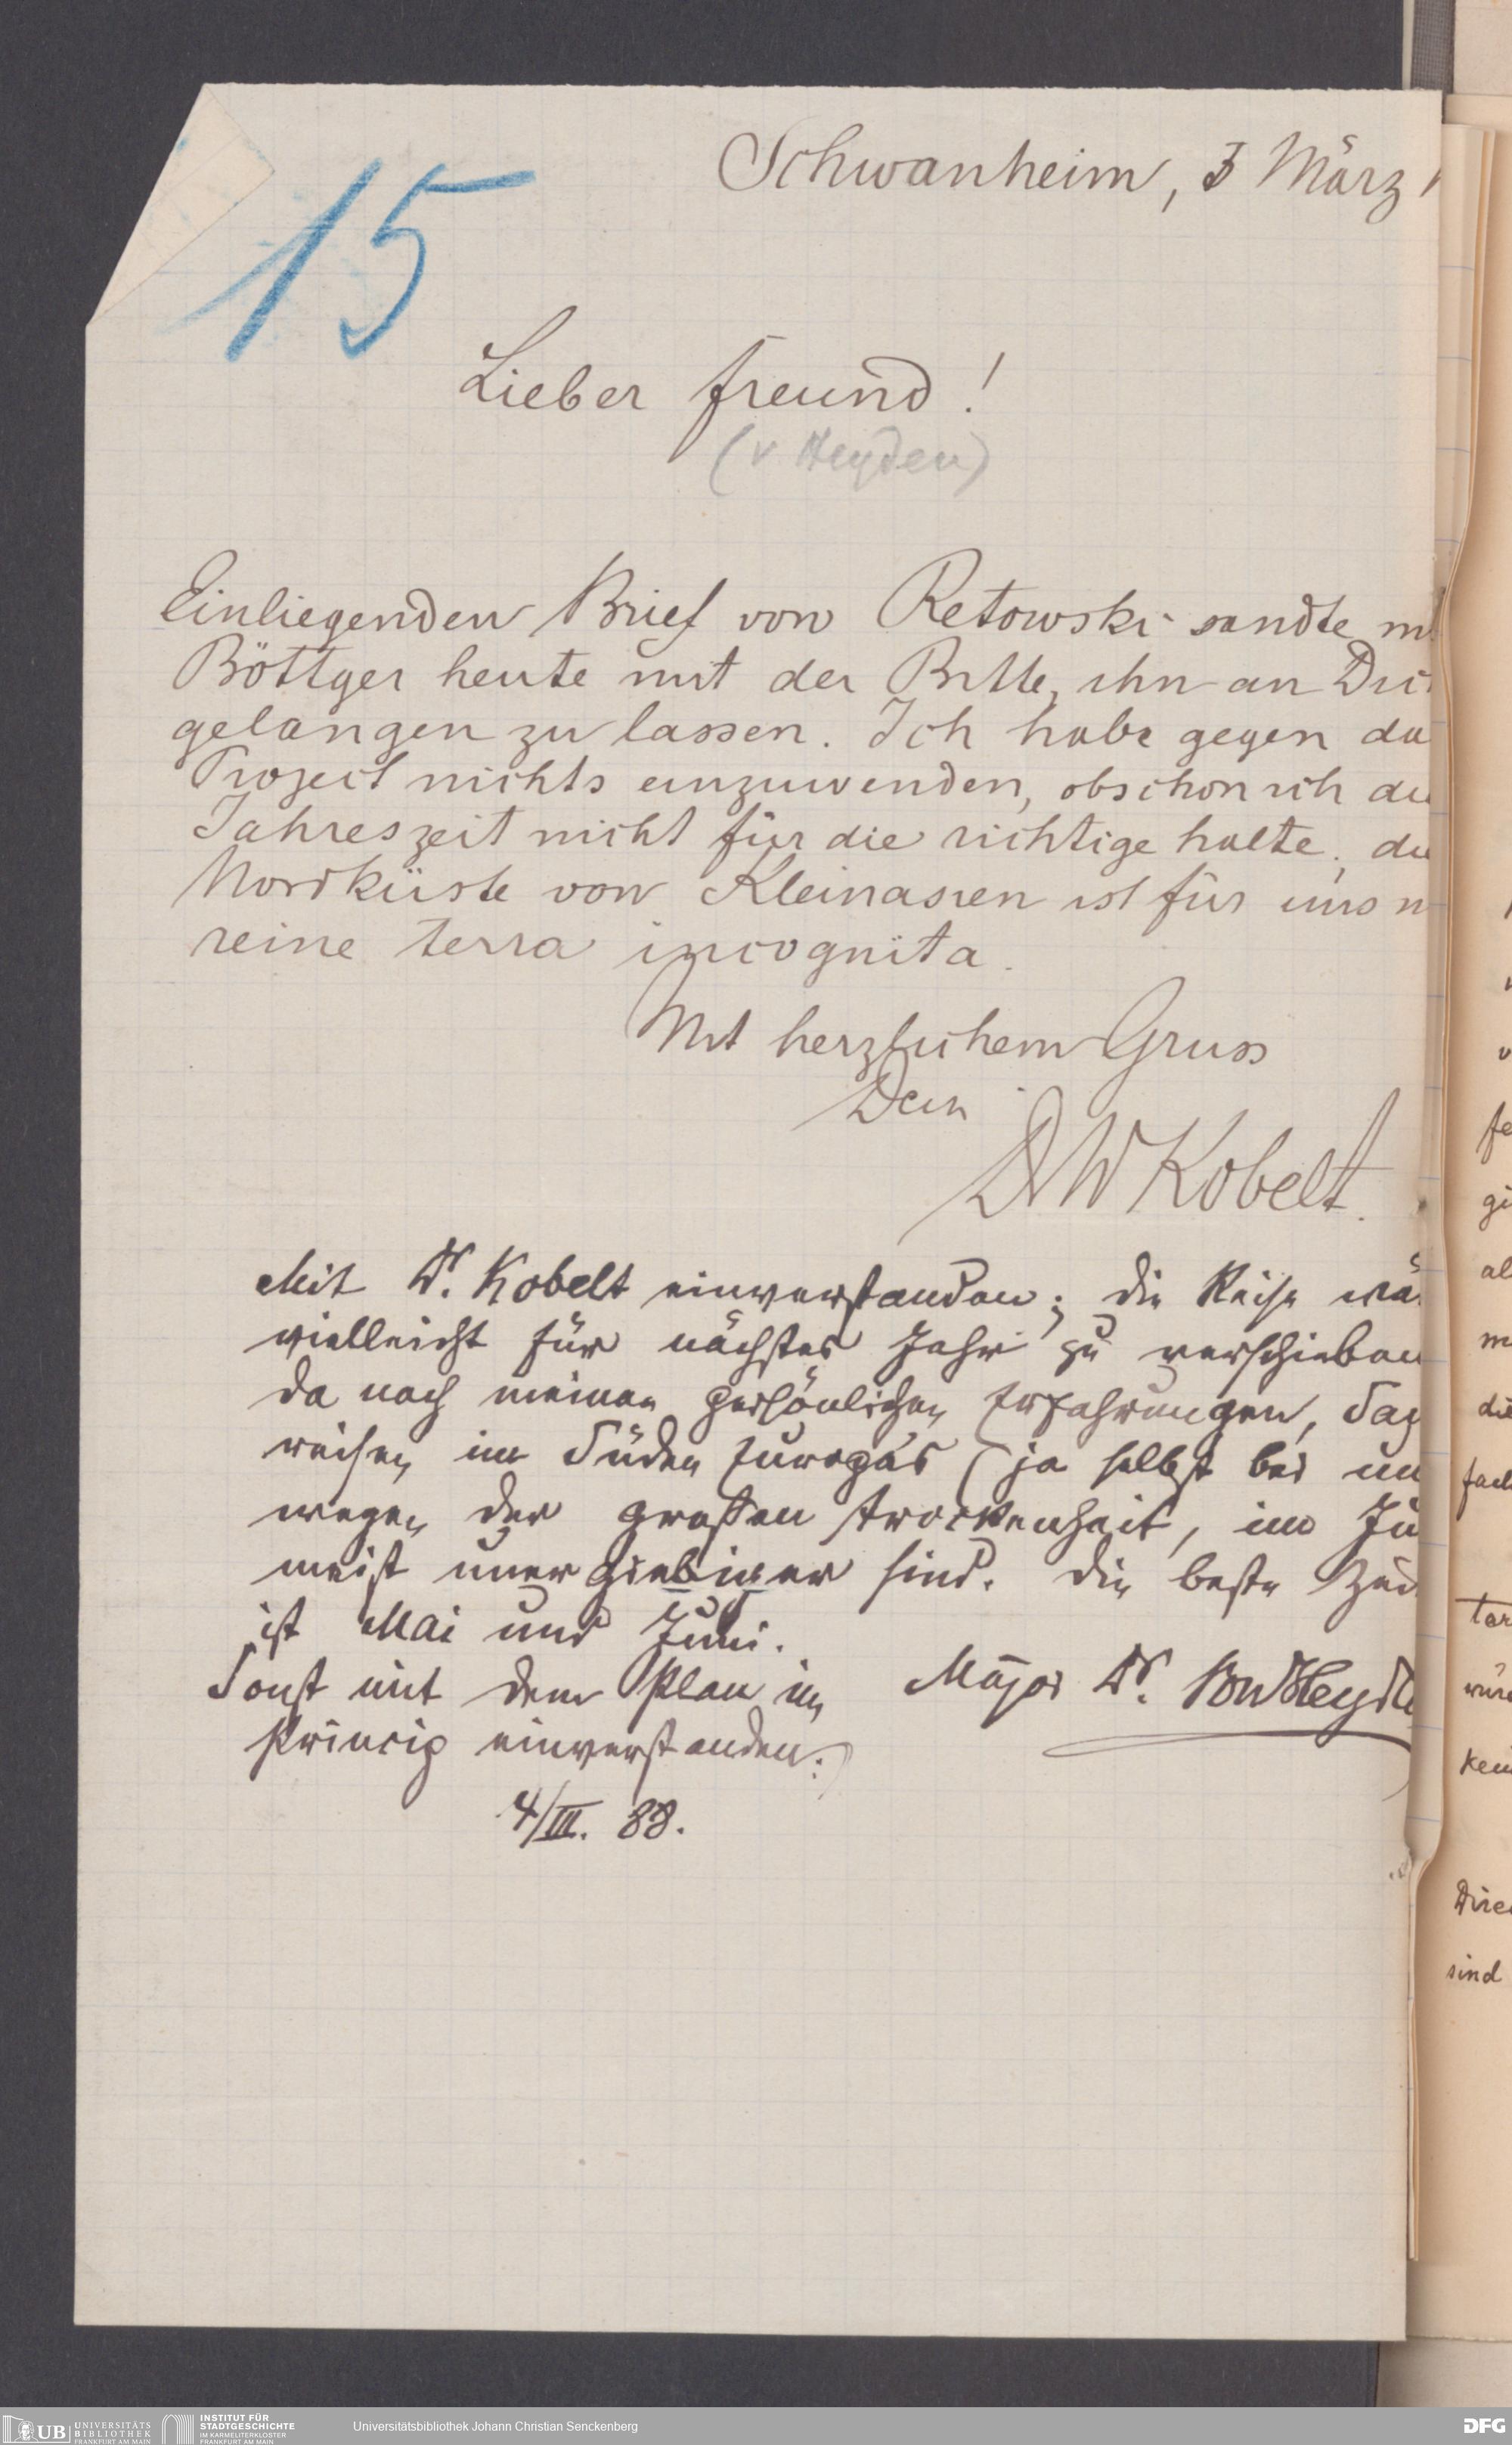 15
Schwanheim, 3 März
Lieber Freund!
(v Heyden)
Einliegenden Brief von Retowski sandte m
Böttger heute mit der Bitte, ihn an Dic
gelangen zu lassen. Ich habe gegen da
Project nichts einzuwenden, obschon ich die
Jahreszeit nicht für die richtige halte; die
Nordküste von Kleinasien ist für uns n
reine terra incognita.
Mit herzlichem Gruss
Dein
Dr W Kobelt.
Mit Dr. Kobelt einverstanden; die Reise wä
vielleicht für nächstes Jahr zu verschieben
da nach meinen persönlichen Erfahrungen,
reisen im Süden Europas (ja selbst bei un
wegen der großen Trockenheit, im Ju
meist unergiebiger sind. Die beste Zeit
ist Mai und Juni.
Sonst mit dem Plan im
Princip einverstanden.
Major Dr. von Heyde
4/III. 88.
fe
gi
al
m
die
fach
wür
Kein
Direc
sind
UB UNIVERSITÄTS
BIBLIOTHEK
FRANKFURT AM MAIN
INSTITUT FÜR
STADTGESCHICHTE
IM KARMELITERKLOSTER
FRANKFURT AM MAIN
Universitätsbibliothek Johann Christian Senckenberg
DFG